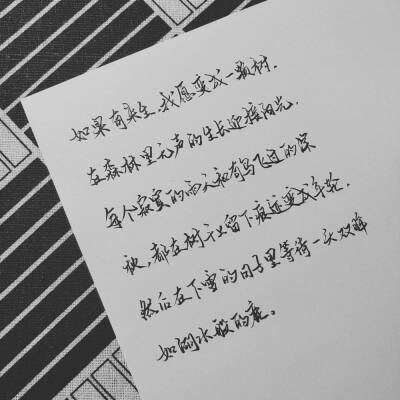 如果有来生，我愿变成一颗树．
在森林里无声的生长迎接阳光．
每个寂寞的雨天和有鸟飞过的深
秋，都在树干上留下痕迹变成年轮．
然后在下雪的日子里等待一头双眸
如湖水般的鹿。